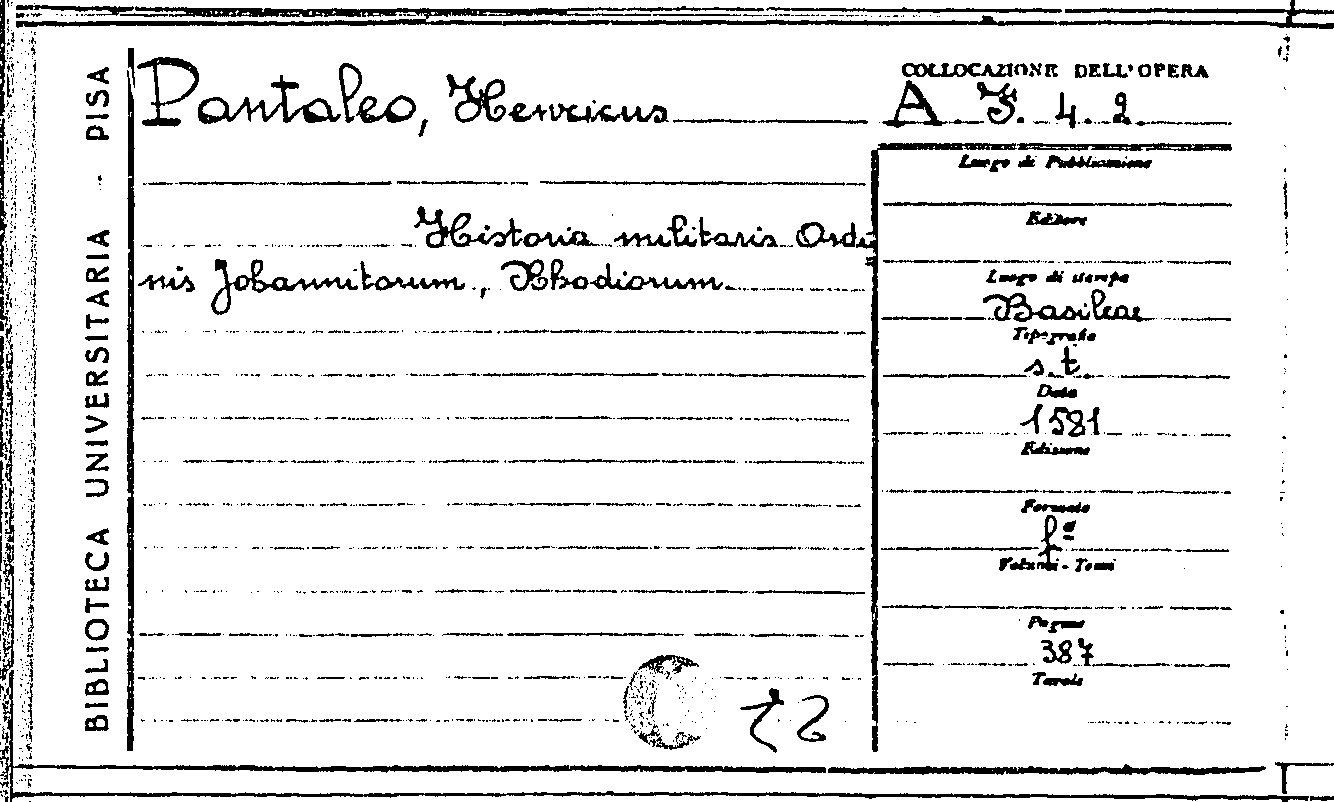 BIBLIOTECA UNIVERSITARIA - PISA
Pantaleo, Henricus
COLLOCAZIONE DELL'OPERA
A. F. 4. 2.
Historia militaris Ordi
nis Johannitarum, Rhodiorum.
Luogo di Pubblicazione
Editore
Luogo di stampa
Basileae
Tipografia
s.t.
Data
1581
Edizione
Formato
fº
Volumi - Tomi
Pagine
387
Tavole